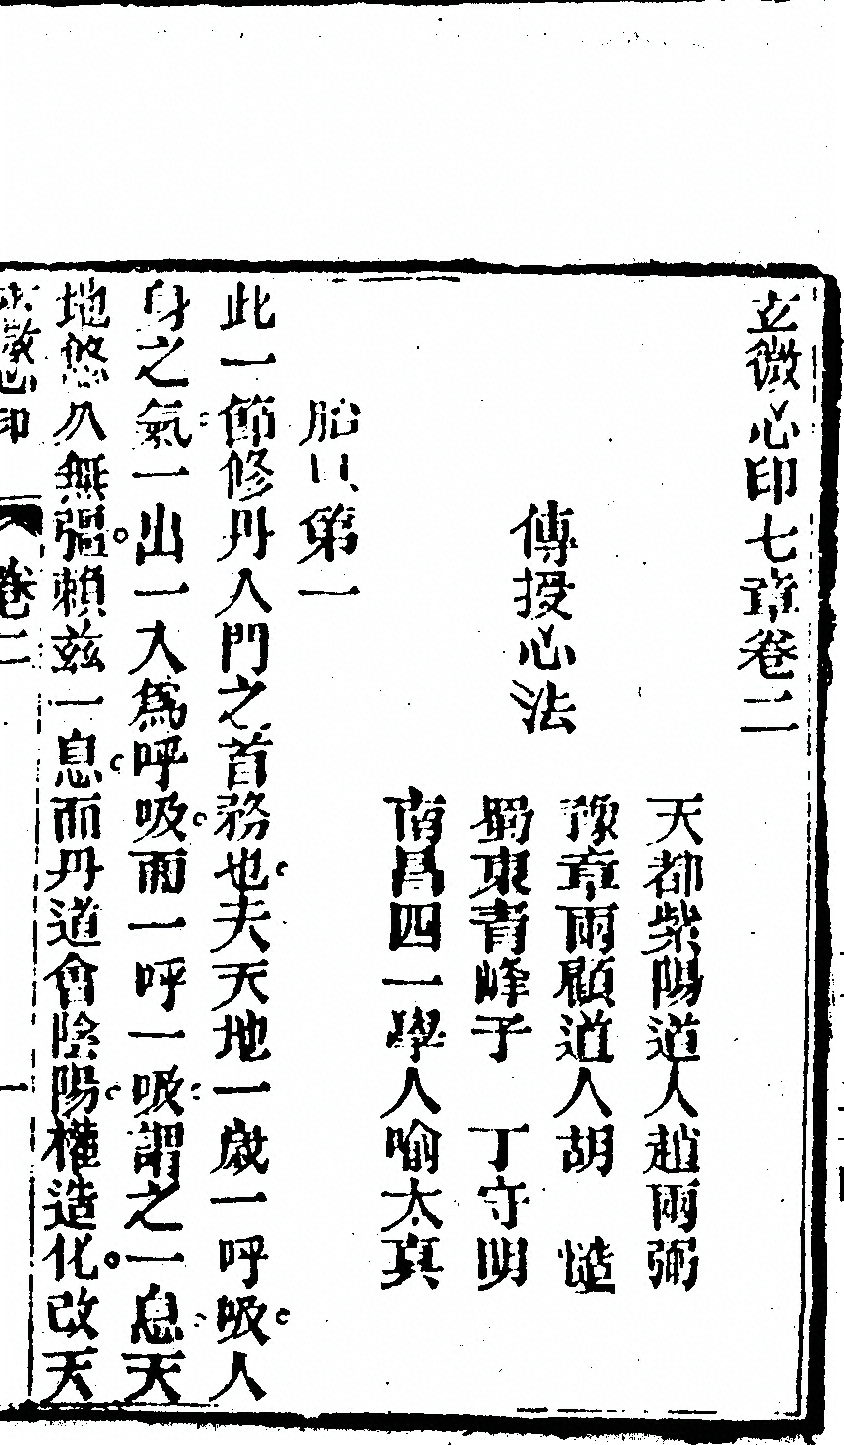 玄微心印七章卷二
天都紫陽道人趙兩弼
豫章雨顧道人胡 慥
傳授心法
蜀東青峰子 丁守明
南昌四一學人喻太真
胎息第一
此一節修丹入門之首務也夫天地一歲一呼吸人
身之氣一出一入為呼吸而一呼一吸謂之一息天
地悠久無彊賴茲一息而丹道會陰陽權造化改天
玄微心印 卷二 一